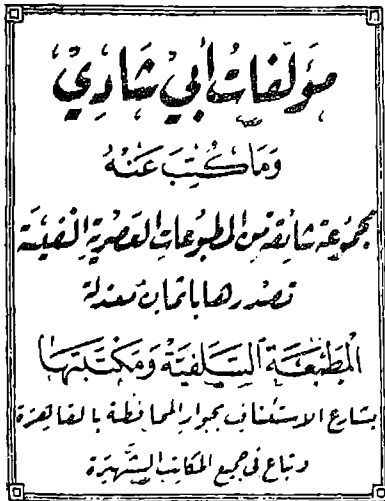 مؤلفات أبي شادي
وَمَا كُتِبَ عَنْهُ
مجموعة شائقة من المطبوعات العصرية النفيسة
تصدرها باثمان معتدلة
المطبعة السَّلَفيَّة وَمَكتبَتها
بشارع الاستئناف بجوار المحافظة بالقاهرة
وتباع فى جميع المكاتب الشَّهيرة